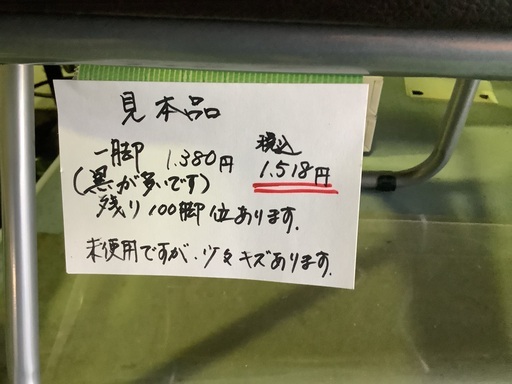 見本品
一脚 1.380円 税込 1.518円
(黒が多いです)
残り100脚位あります.
未使用ですが、少々キズあります.